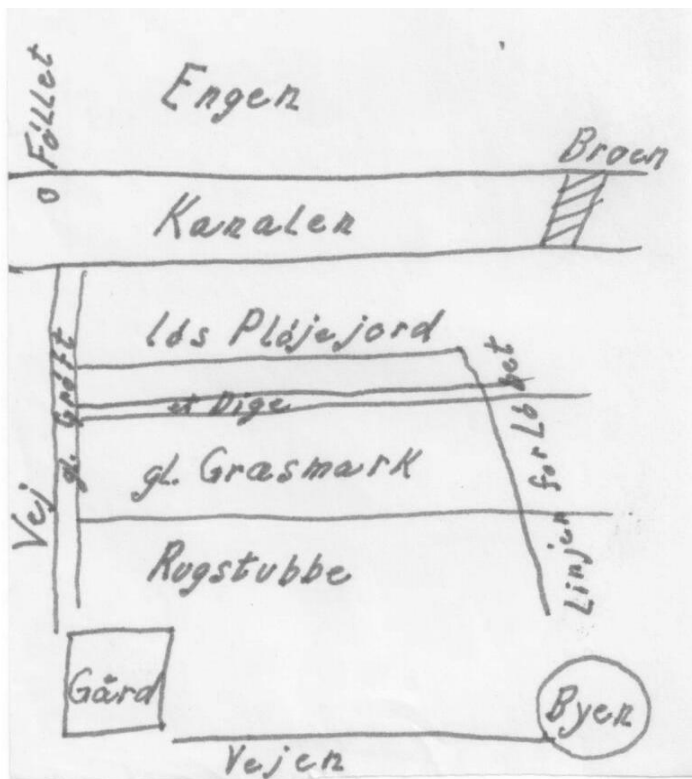 Engen
o Føllet
Broen
Kanalen
løs Pløjejord
gl. Grøft
et Dige
gl. Græsmark
Linjen for Løbet
Vej
Rugstubbe
Gård
Byen
Vejen